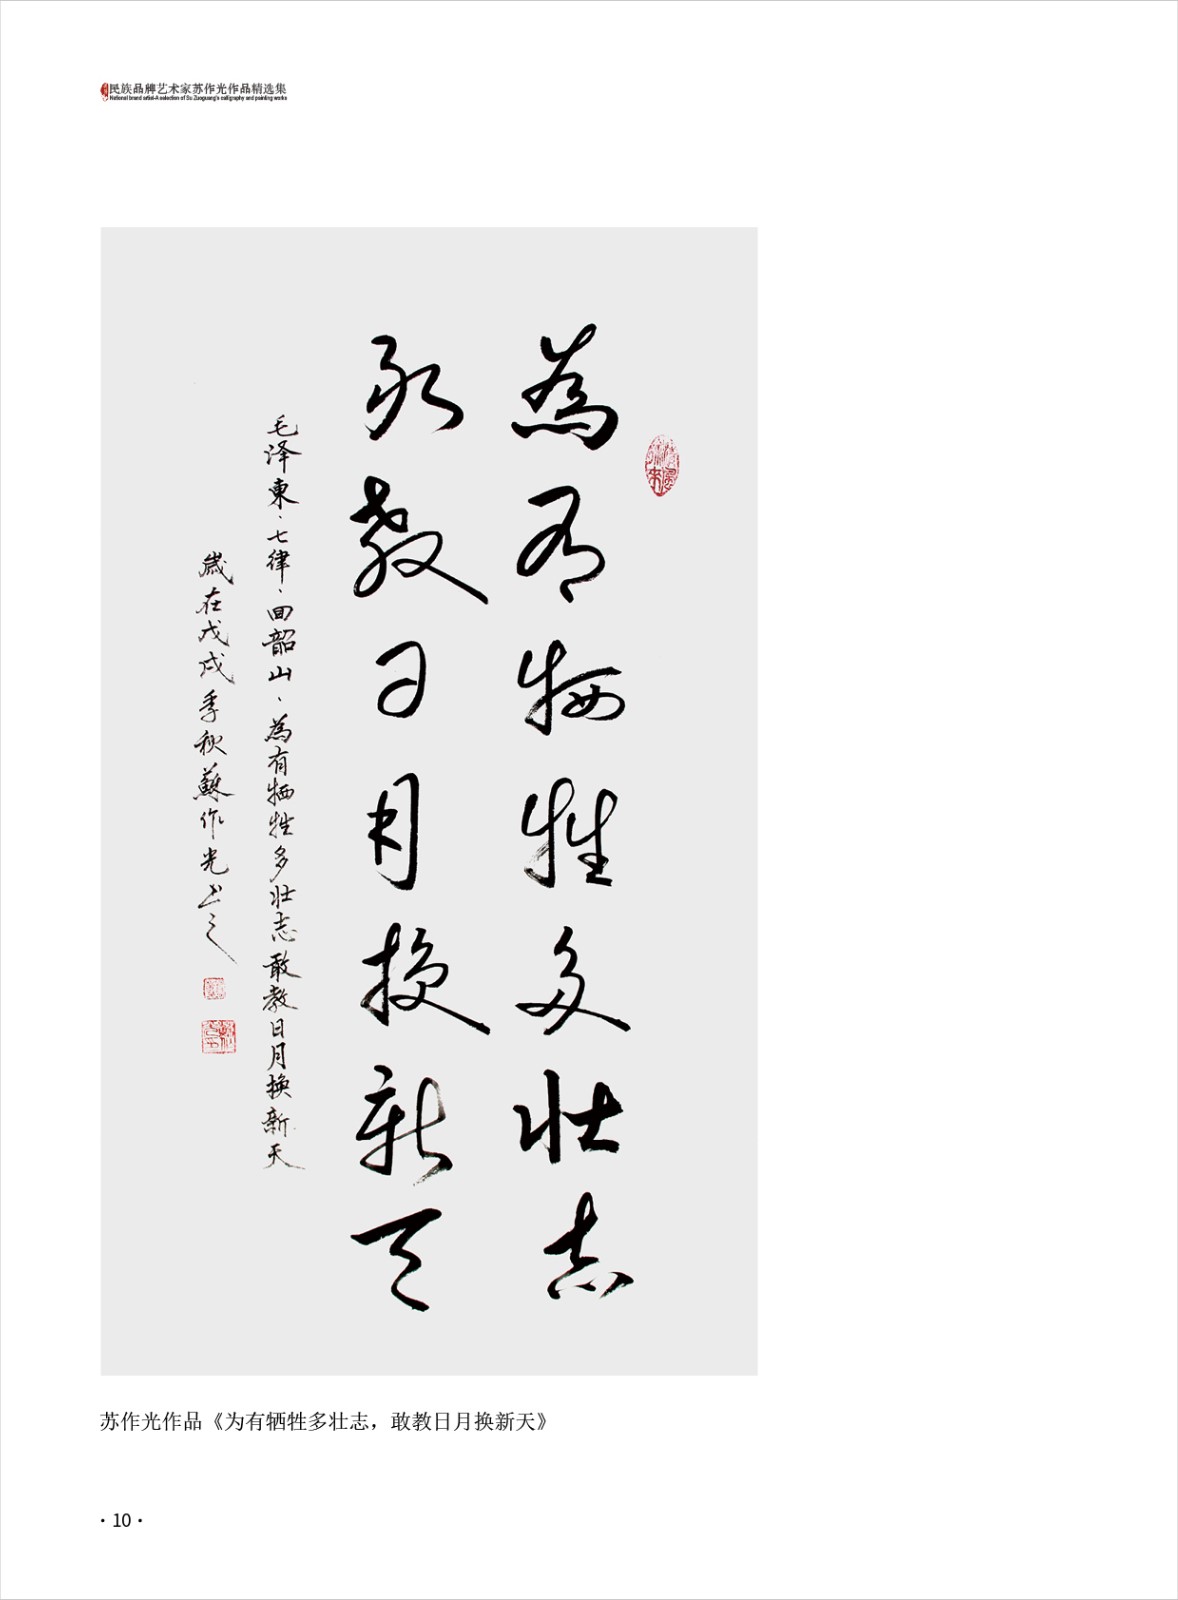 民族品牌艺术家苏作光作品精选集
National brand artist-A selection of Su Zuoguang's calligraphy and painting works
為有牺牲多壮志
敢教日月换新天
毛泽東·七律·回韶山·為有牺牲多壮志敢教日月换新天
歲在戊戌季秋蘇作光书之
苏作光作品《为有牺牲多壮志，敢教日月换新天》
·10·